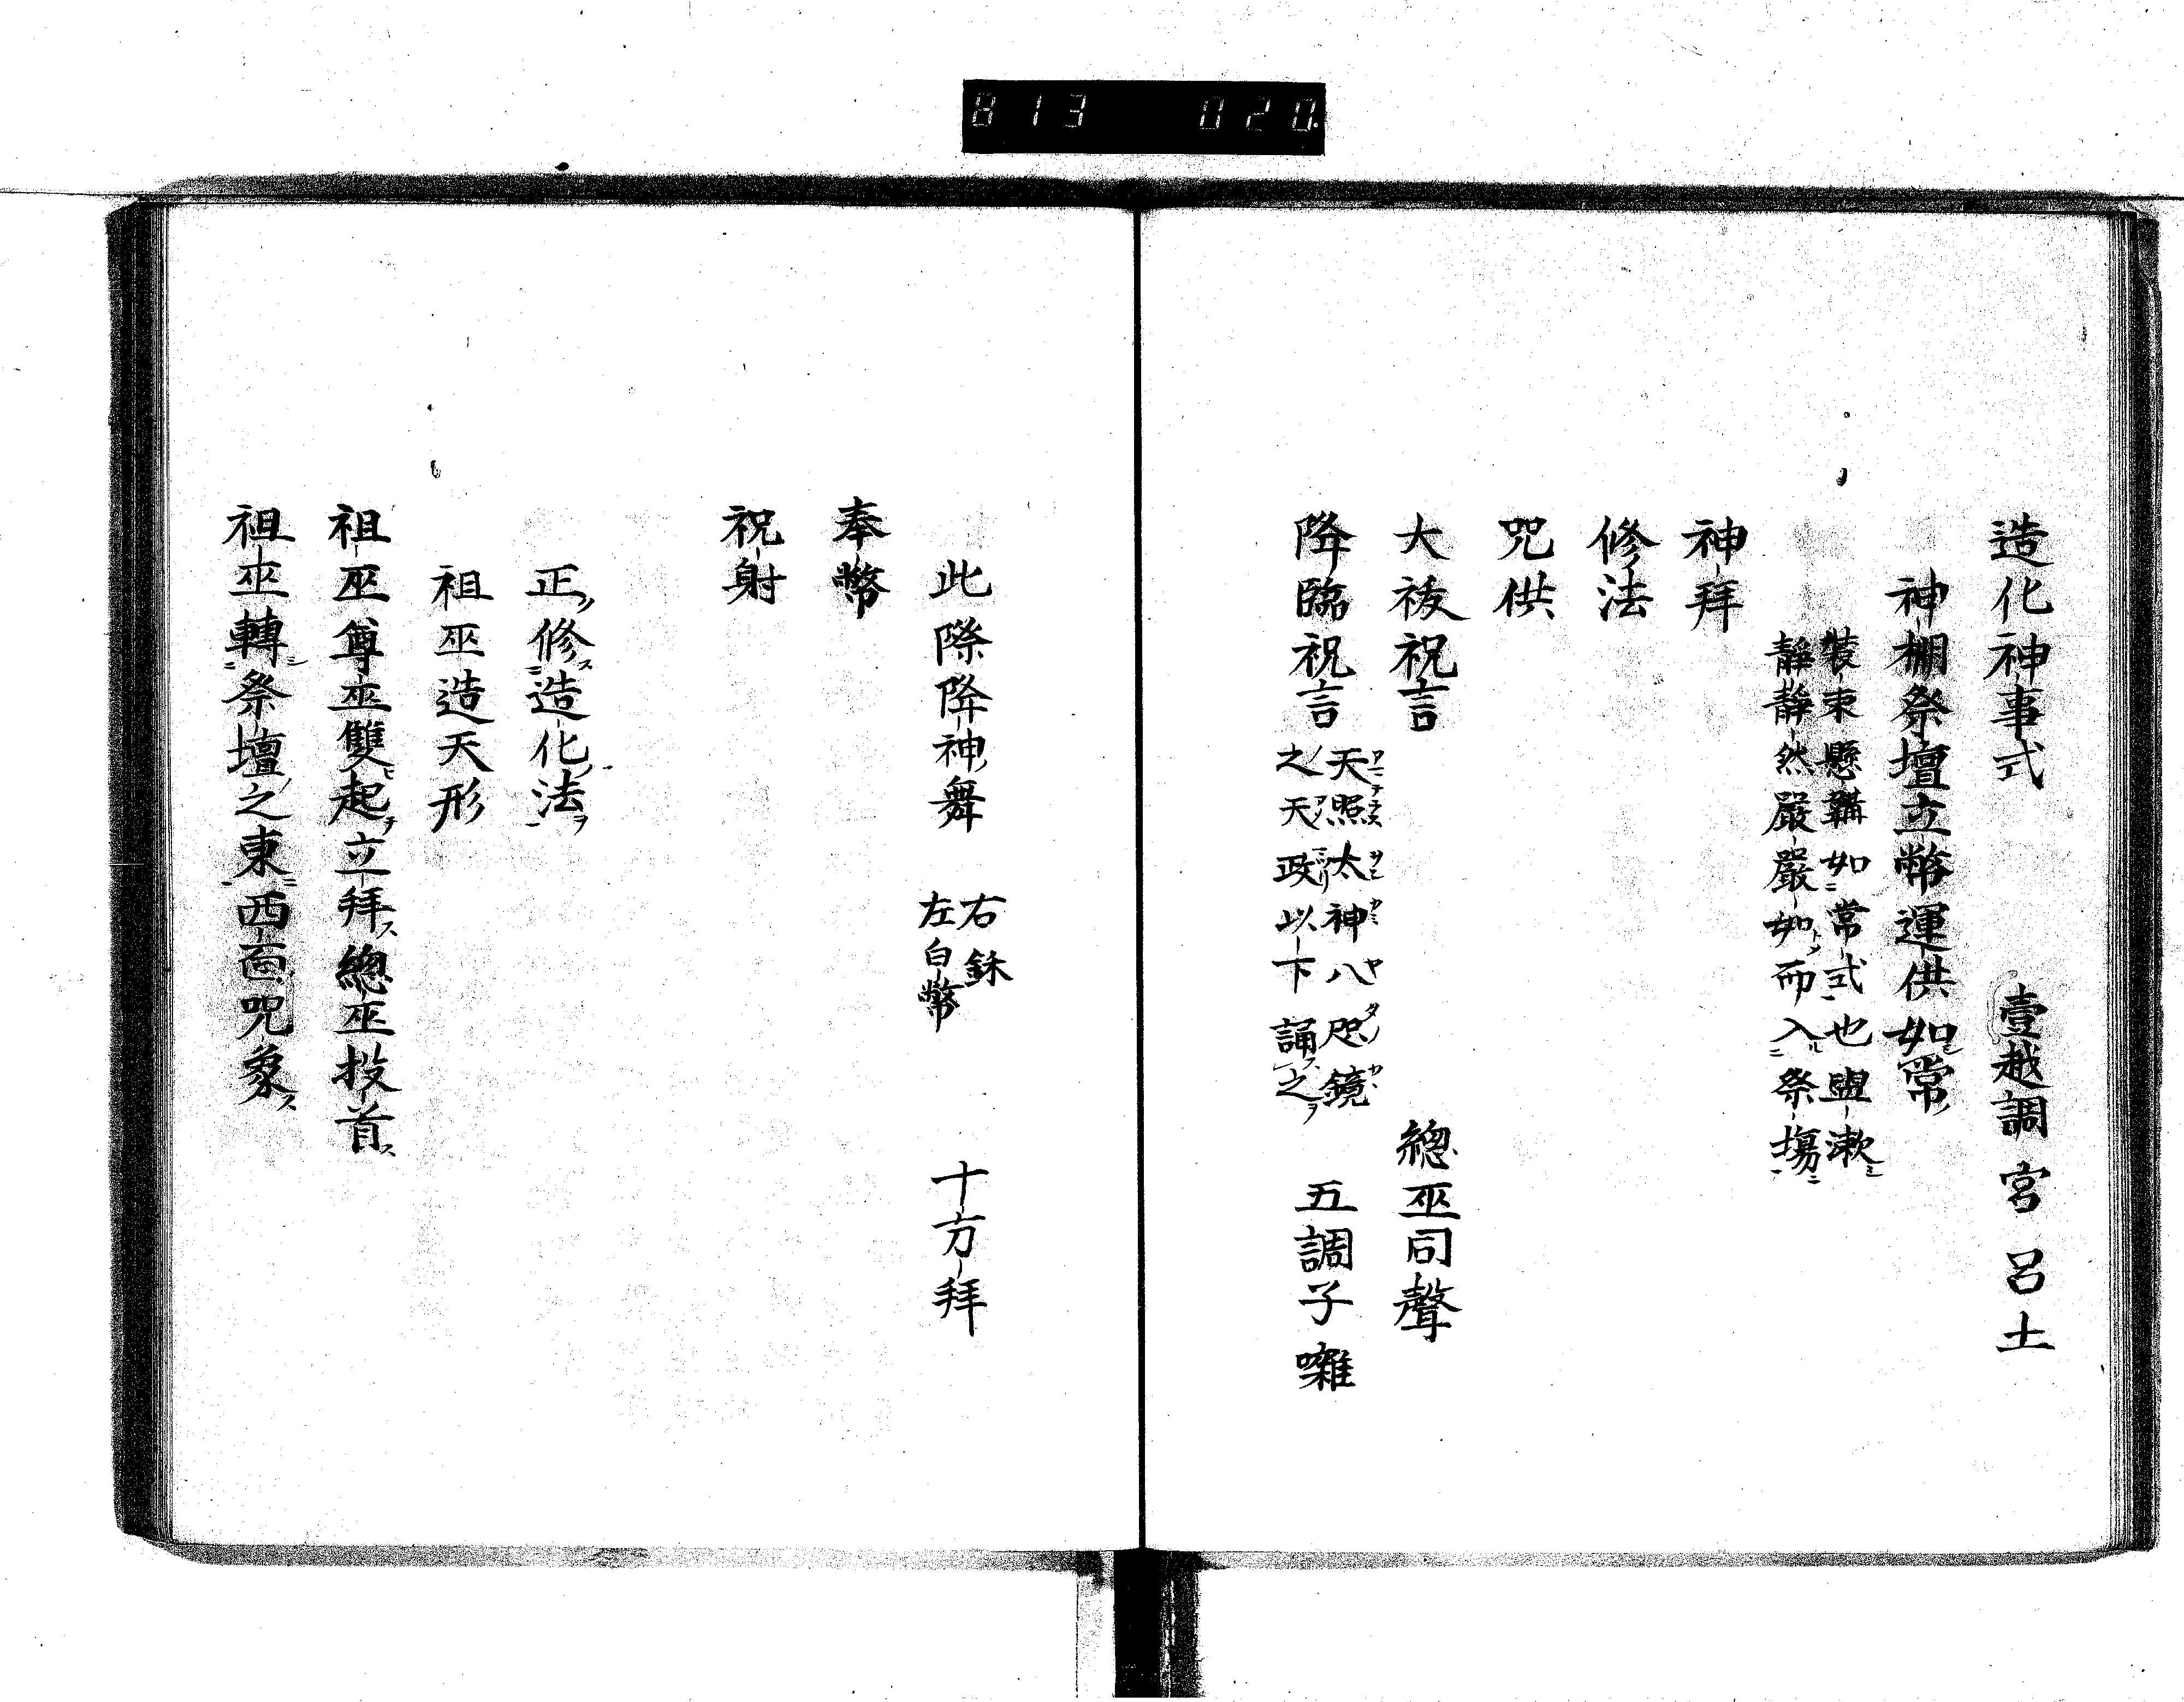 813 020.
造化神事式 壹越調 宮 呂 土
神棚祭壇立幣運供如常
裝束懸鞴如常式也盥漱
靜靜然嚴嚴如而入祭場
神拜
修法
咒供
大祓祝言 總巫同聲
降臨祝言 天照太神八咫鏡
之天政以下誦之 五調子囃
此際降神舞 右鉾
左白幣 十方拜
奉幣
祝射
正修造化法
祖巫造天形
祖巫尊巫雙起立拜總巫投首
祖巫轉祭壇之東西面咒象